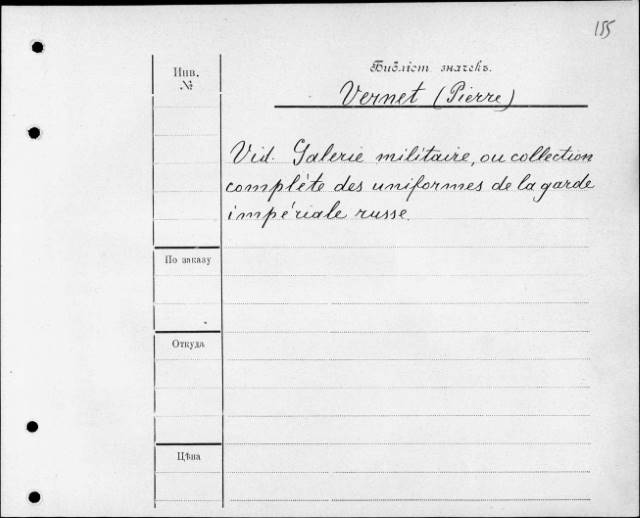 155
Инв.
№
Библіот. значекъ.
Vernet (Pierre)
Vid. Galerie militaire, ou collection
complète des uniformes de la garde
impériale russe.
По заказу
Откуда
Цѣна